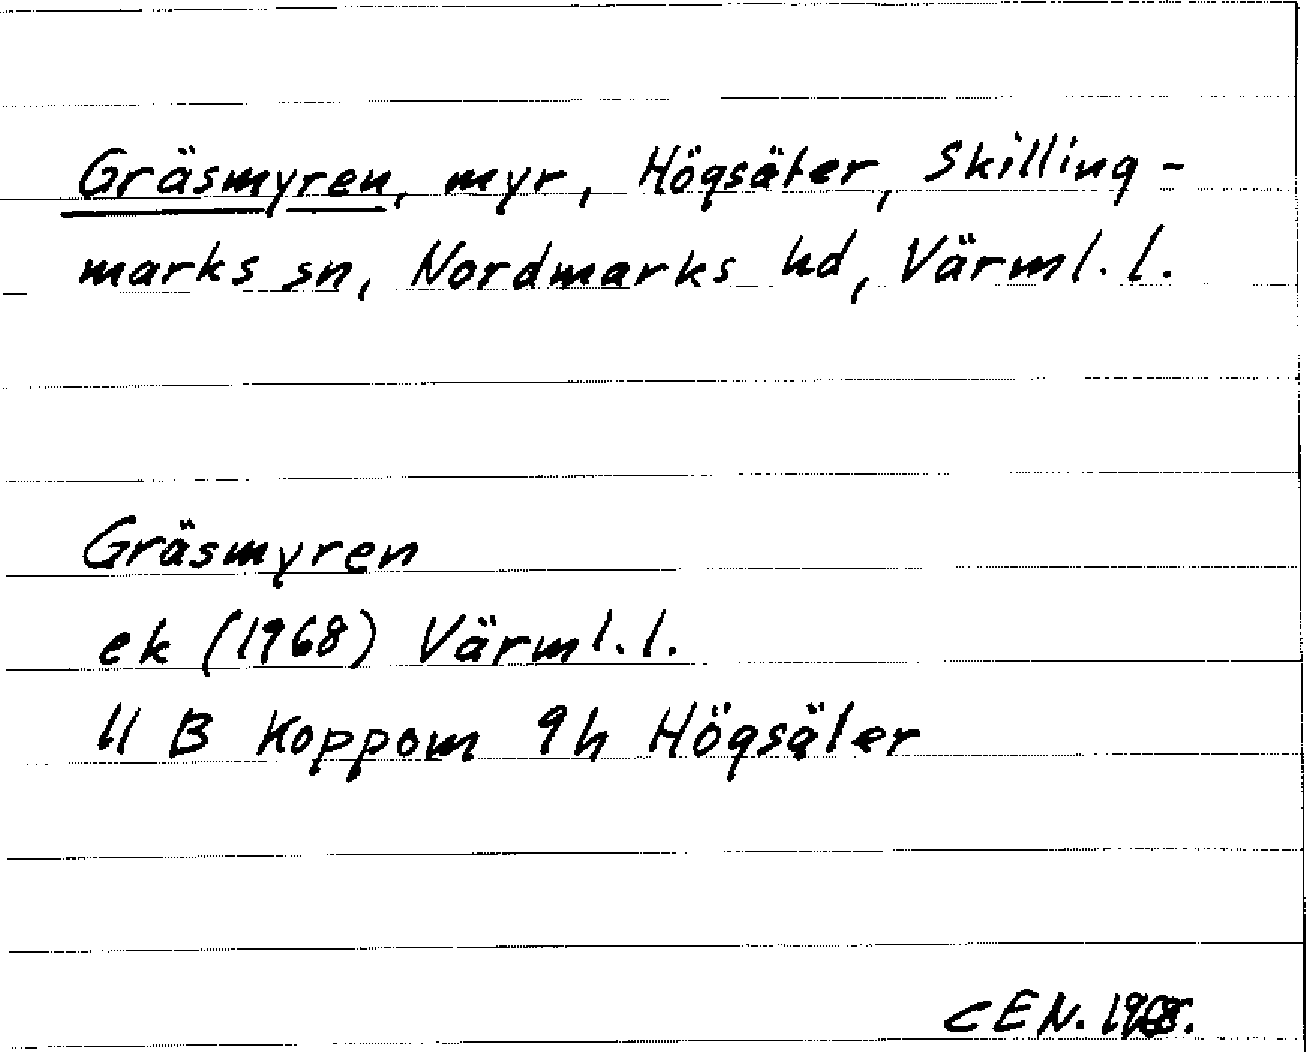 Gräsmyren, myr, Högsäter, Skilling-
marks sn, Nordmarks hd, Värml. l.
Gräsmyren
ek (1968) Värml. l.
11 B Koppom 9h Högsäter
CEN.